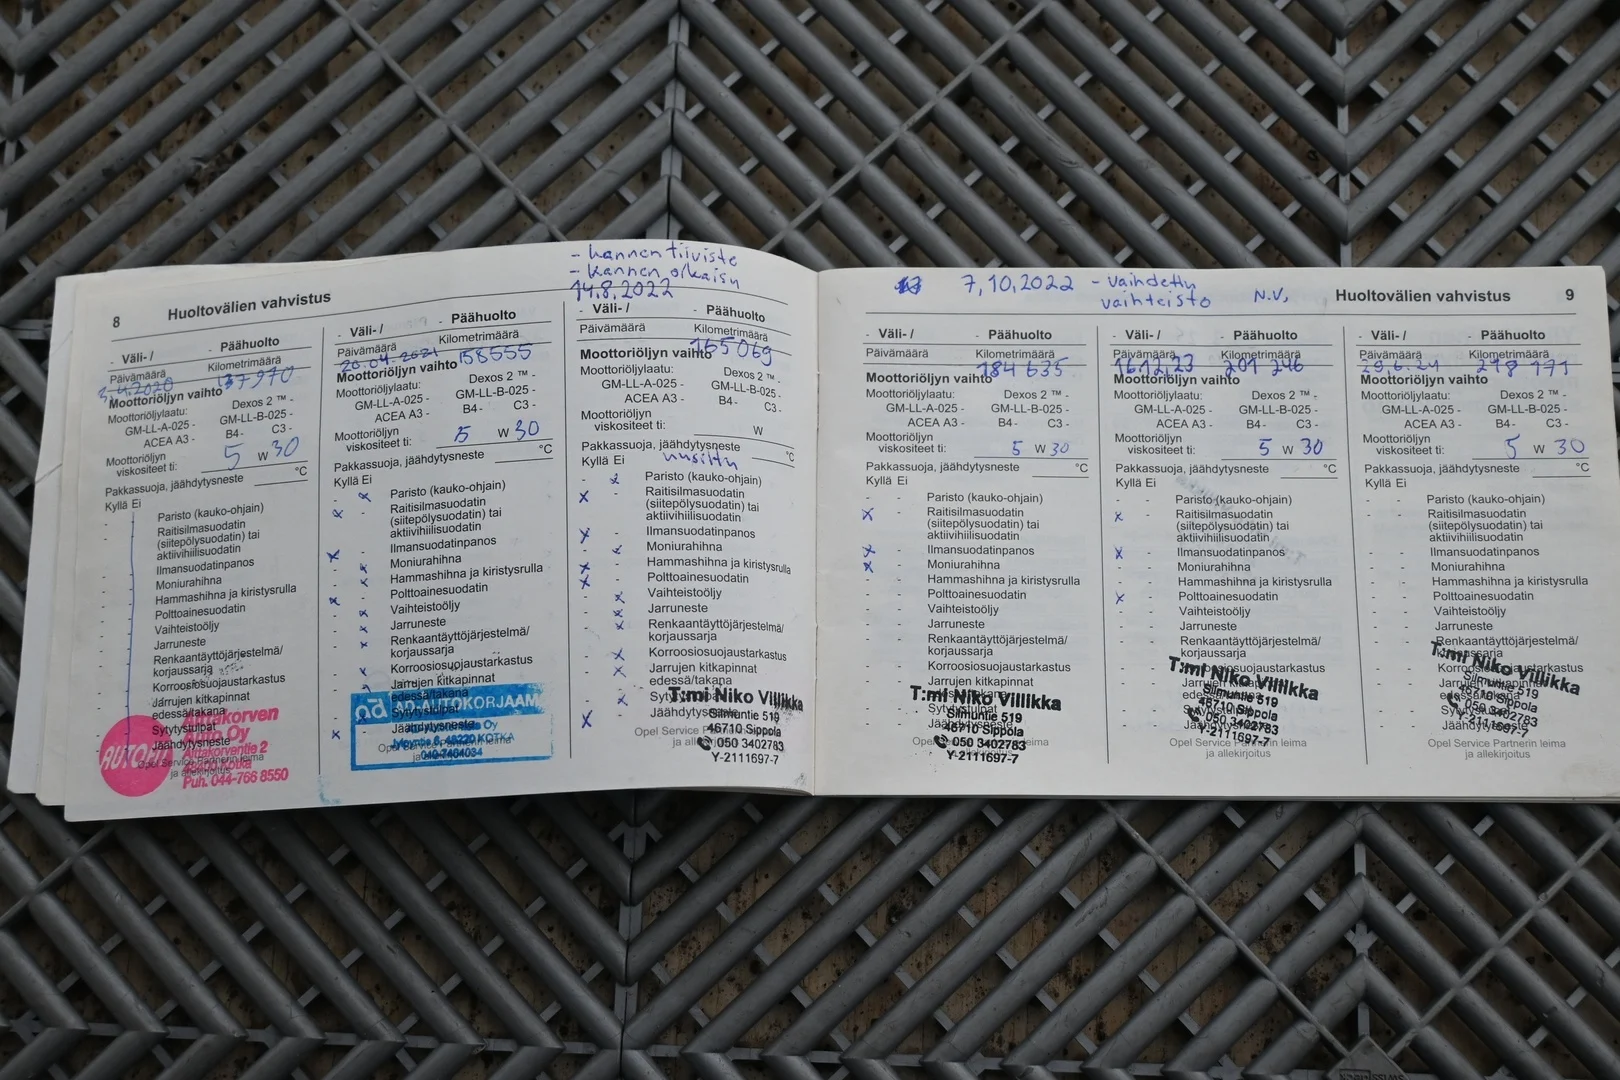 - kannen tiiviste
- kannen oikaisu
14.8.2022
8 Huoltovälien vahvistus
- Väli- / - Päähuolto
Päivämäärä Kilometrimäärä
3.4.2020 137970
Moottoriöljyn vaihto
Moottoriöljylaatu: Dexos 2 ™ -
GM-LL-A-025 - GM-LL-B-025 -
ACEA A3 - B4 - C3 -
Moottoriöljyn
viskositeetti: 5 W 30
Pakkassuoja, jäähdytysneste °C
Kyllä Ei
- Paristo (kauko-ohjain)
- Raitisilmasuodatin
(siitepölysuodatin) tai
aktiivihiilisuodatin
- Ilmansuodatinpanos
- Moniurahihna
- Hammashihna ja kiristysrulla
- Polttoainesuodatin
- Vaihteistoöljy
- Jarruneste
- Renkaantäyttöjärjestelmä/
korjaussarja
- Korroosiosuojaustarkastus
- Jarrujen kitkapinnat
edessä/takana
- Sytytystulpat
- Jäähdytysneste
Opel Service Partnerin leima
ja allekirjoitus
AUTO
Auto Oy
Puh. 044-766 8550
- Väli- / - Päähuolto
Päivämäärä Kilometrimäärä
20.04.2021 158555
Moottoriöljyn vaihto
Moottoriöljylaatu: Dexos 2 ™ -
GM-LL-A-025 - GM-LL-B-025 -
ACEA A3 - B4 - C3 -
Moottoriöljyn
viskositeetti: 5 W 30
Pakkassuoja, jäähdytysneste °C
Kyllä Ei
- x Paristo (kauko-ohjain)
x - Raitisilmasuodatin
(siitepölysuodatin) tai
aktiivihiilisuodatin
x - Ilmansuodatinpanos
- x Moniurahihna
- x Hammashihna ja kiristysrulla
x - Polttoainesuodatin
- x Vaihteistoöljy
- x Jarruneste
- x Renkaantäyttöjärjestelmä/
korjaussarja
- x Korroosiosuojaustarkastus
- x Jarrujen kitkapinnat
edessä/takana
- x Sytytystulpat
x - Jäähdytysneste
ad AD AUTOKORJAAMO
48220 KOTKA
- Väli- / - Päähuolto
Päivämäärä Kilometrimäärä
165069
Moottoriöljyn vaihto
Moottoriöljylaatu: Dexos 2 ™ -
GM-LL-A-025 - GM-LL-B-025 -
ACEA A3 - B4 - C3 -
Moottoriöljyn
viskositeetti: W
Pakkassuoja, jäähdytysneste °C
Kyllä Ei uusittu
- x Paristo (kauko-ohjain)
x - Raitisilmasuodatin
(siitepölysuodatin) tai
aktiivihiilisuodatin
x - Ilmansuodatinpanos
- x Moniurahihna
x - Hammashihna ja kiristysrulla
x - Polttoainesuodatin
- x Vaihteistoöljy
- x Jarruneste
- x Renkaantäyttöjärjestelmä/
korjaussarja
- x Korroosiosuojaustarkastus
- x Jarrujen kitkapinnat
edessä/takana
- x Sytytystulpat
x - Jäähdytysneste
Opel Service Partnerin leima
ja allekirjoitus
T:mi Niko Villikka
Silmuntie 519
46710 Sippola
050 3402783
Y-2111697-7
7,10,2022 - vaihdettu
vaihteisto N.V,
Huoltovälien vahvistus 9
- Väli- / - Päähuolto
Päivämäärä Kilometrimäärä
184 635
Moottoriöljyn vaihto
Moottoriöljylaatu: Dexos 2 ™ -
GM-LL-A-025 - GM-LL-B-025 -
ACEA A3 - B4 - C3 -
Moottoriöljyn
viskositeetti: 5 W 30
Pakkassuoja, jäähdytysneste °C
Kyllä Ei
- - Paristo (kauko-ohjain)
x - Raitisilmasuodatin
(siitepölysuodatin) tai
aktiivihiilisuodatin
x - Ilmansuodatinpanos
x - Moniurahihna
- - Hammashihna ja kiristysrulla
- - Polttoainesuodatin
- - Vaihteistoöljy
- - Jarruneste
- - Renkaantäyttöjärjestelmä/
korjaussarja
- - Korroosiosuojaustarkastus
- - Jarrujen kitkapinnat
edessä/takana
- - Sytytystulpat
- - Jäähdytysneste
Opel Service Partnerin leima
ja allekirjoitus
T:mi Niko Villikka
Silmuntie 519
46710 Sippola
050 3402783
Y-2111697-7
- Väli- / - Päähuolto
Päivämäärä Kilometrimäärä
16.12.23 201 246
Moottoriöljyn vaihto
Moottoriöljylaatu: Dexos 2 ™ -
GM-LL-A-025 - GM-LL-B-025 -
ACEA A3 - B4 - C3 -
Moottoriöljyn
viskositeetti: 5 W 30
Pakkassuoja, jäähdytysneste °C
Kyllä Ei
- - Paristo (kauko-ohjain)
x - Raitisilmasuodatin
(siitepölysuodatin) tai
aktiivihiilisuodatin
x - Ilmansuodatinpanos
- - Moniurahihna
- - Hammashihna ja kiristysrulla
x - Polttoainesuodatin
- - Vaihteistoöljy
- - Jarruneste
- - Renkaantäyttöjärjestelmä/
korjaussarja
T:mi Niko Villikka
Silmuntie 519
46710 Sippola
050 3402783
Y-2111697-7
Opel Service Partnerin leima
ja allekirjoitus
- Väli- / - Päähuolto
Päivämäärä Kilometrimäärä
29.6.24 218 171
Moottoriöljyn vaihto
Moottoriöljylaatu: Dexos 2 ™ -
GM-LL-A-025 - GM-LL-B-025 -
ACEA A3 - B4 - C3 -
Moottoriöljyn
viskositeetti: 5 W 30
Pakkassuoja, jäähdytysneste °C
Kyllä Ei
- - Paristo (kauko-ohjain)
- - Raitisilmasuodatin
(siitepölysuodatin) tai
aktiivihiilisuodatin
- - Ilmansuodatinpanos
- - Moniurahihna
- - Hammashihna ja kiristysrulla
- - Polttoainesuodatin
- - Vaihteistoöljy
- - Jarruneste
- - Renkaantäyttöjärjestelmä/
T:mi Niko Villikka
Silmuntie 519
46710 Sippola
050 3402783
Y-2111697-7
Opel Service Partnerin leima
ja allekirjoitus